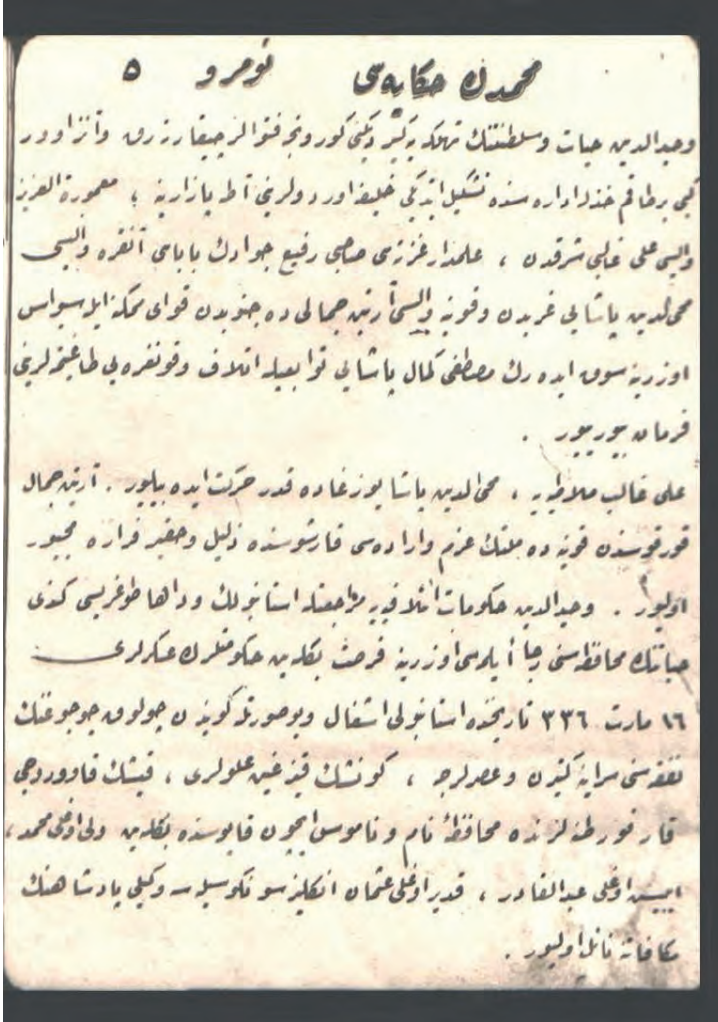 محمدك حكايه‌سى نومرو ٥
وحيدالدين حيات وسلطنتنك تهلكه‌يه كيرديكنى كورونجه فتوالر چيقارته‌رق وآنزاوور
كبى برطاقم خذله اداره‌سنده تشكيل ايتديكى خليفه اوردولرينى آطه پازارينه ؛ معمورة العزيز
واليسى على غالبى شرقدن ، علمدار غزته‌سى صاحبى رفيع جوادك باباسى آنقره واليسى
محى الدين پاشايى غربدن وقونيه واليسى آرتين جمالى ده جنوبدن قواى ممكنه ايله سيواس
اوزرينه سوق ايده‌رك مصطفى كمال پاشايى توابعيله اتلاف وقونغره‌يى طاغيتمه‌لرينى
فرمان بيوريور .
على غالب ملاطيه‌يه ، محى الدين پاشا يوزغاده قدر حركت ايده بيلور . آرتين جمال
قورقوسندن قونيه ده ملتك عزم واراده‌سى قارشوسنده ذليل وحقير فراره مجبور
اوليور . وحيدالدين حكومات ائتلافيه‌يه مراجعتله استانبولك وداها طوغريسى كندى
حياتنك محافظه‌سنى رجا أيله‌مسى اوزرينه فرصت بكله‌ين حكومتلرك عسكرلرى
١٦ مارت ٣٣٦ تاريخنده استانبولى اشغال وبوصورتله كويندن چولوق چوجوغنك
نفقه‌سنى سرايه كتيرن وعصرلرجه ، كونشك قيزغين علولرى ، قيشك قاووروجى
قار فورطنه‌لرنده محافظهٔ نام وناموسى ايچون قاپوسنده بكله‌ين ولى اوغلى محمد ،
اوغلى عبدالقادر ، قدير اوغلى عثمان انكليز سونكوسيله وكيلى پادشاهنك
مكافاتنه نائل اوليور .